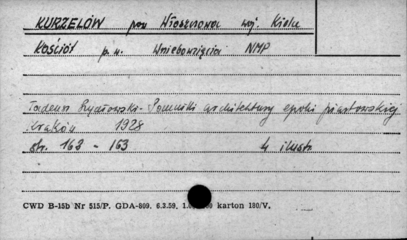 KURZELÓW pow Włoszczowa woj. Kielce
KOŚCIÓŁ p.w. Wniebowzięcia NMP
Tadeusz Szydłowski - Pomniki architektury epoki piastowskiej
Kraków 1928
str. 162 - 163 4 ilustr
CWD B-15b Nr 515/P. GDA-809. 6.3.59. karton 180/V.